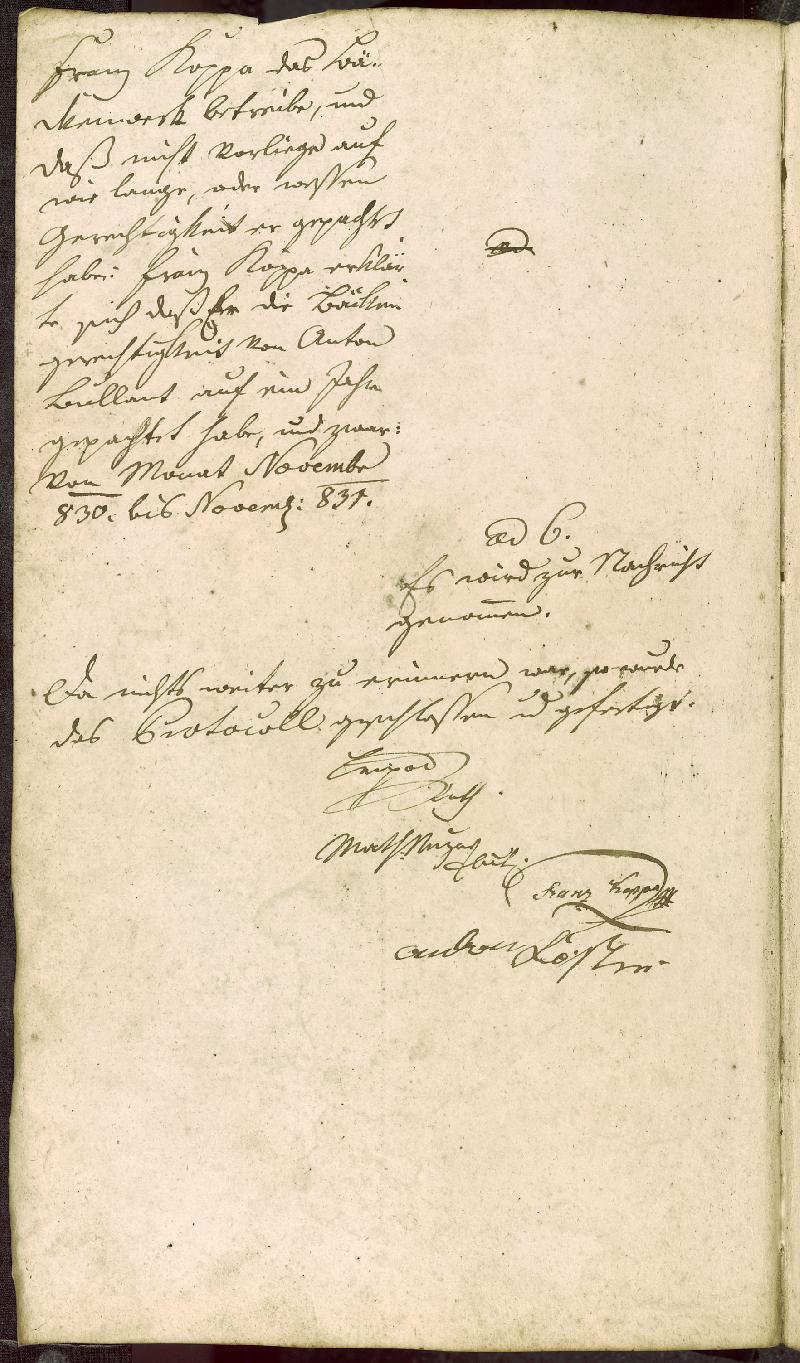 Franz Koppa das Bä-
ckenwerk betreibe, und
daß nicht vorliege auf
wie lange, oder wessen
Gerechtigkeit er gepachtet
habe: Franz Koppa erklär
te sich daß Er die Bäcken
gerechtigkeit von Anton
Bullant auf ein Jahr
gepachtet habe, und zwar:
von Monat Novembe
830. bis Novemb: 831.
ad
ad 6.
Es wird zur Nachricht
genommen.
Da nichts weiter zu erinnern war, so wurde
das Protocoll geschlossen und gefertigt.
Franz Koppa